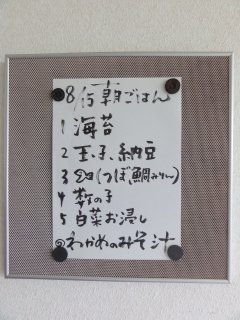 8/15 朝ごはん
1 海苔
2 玉子、納豆
3 (つぼ鯛みりん)
4 数の子
5 白菜お浸し
◎わかめのみそ汁